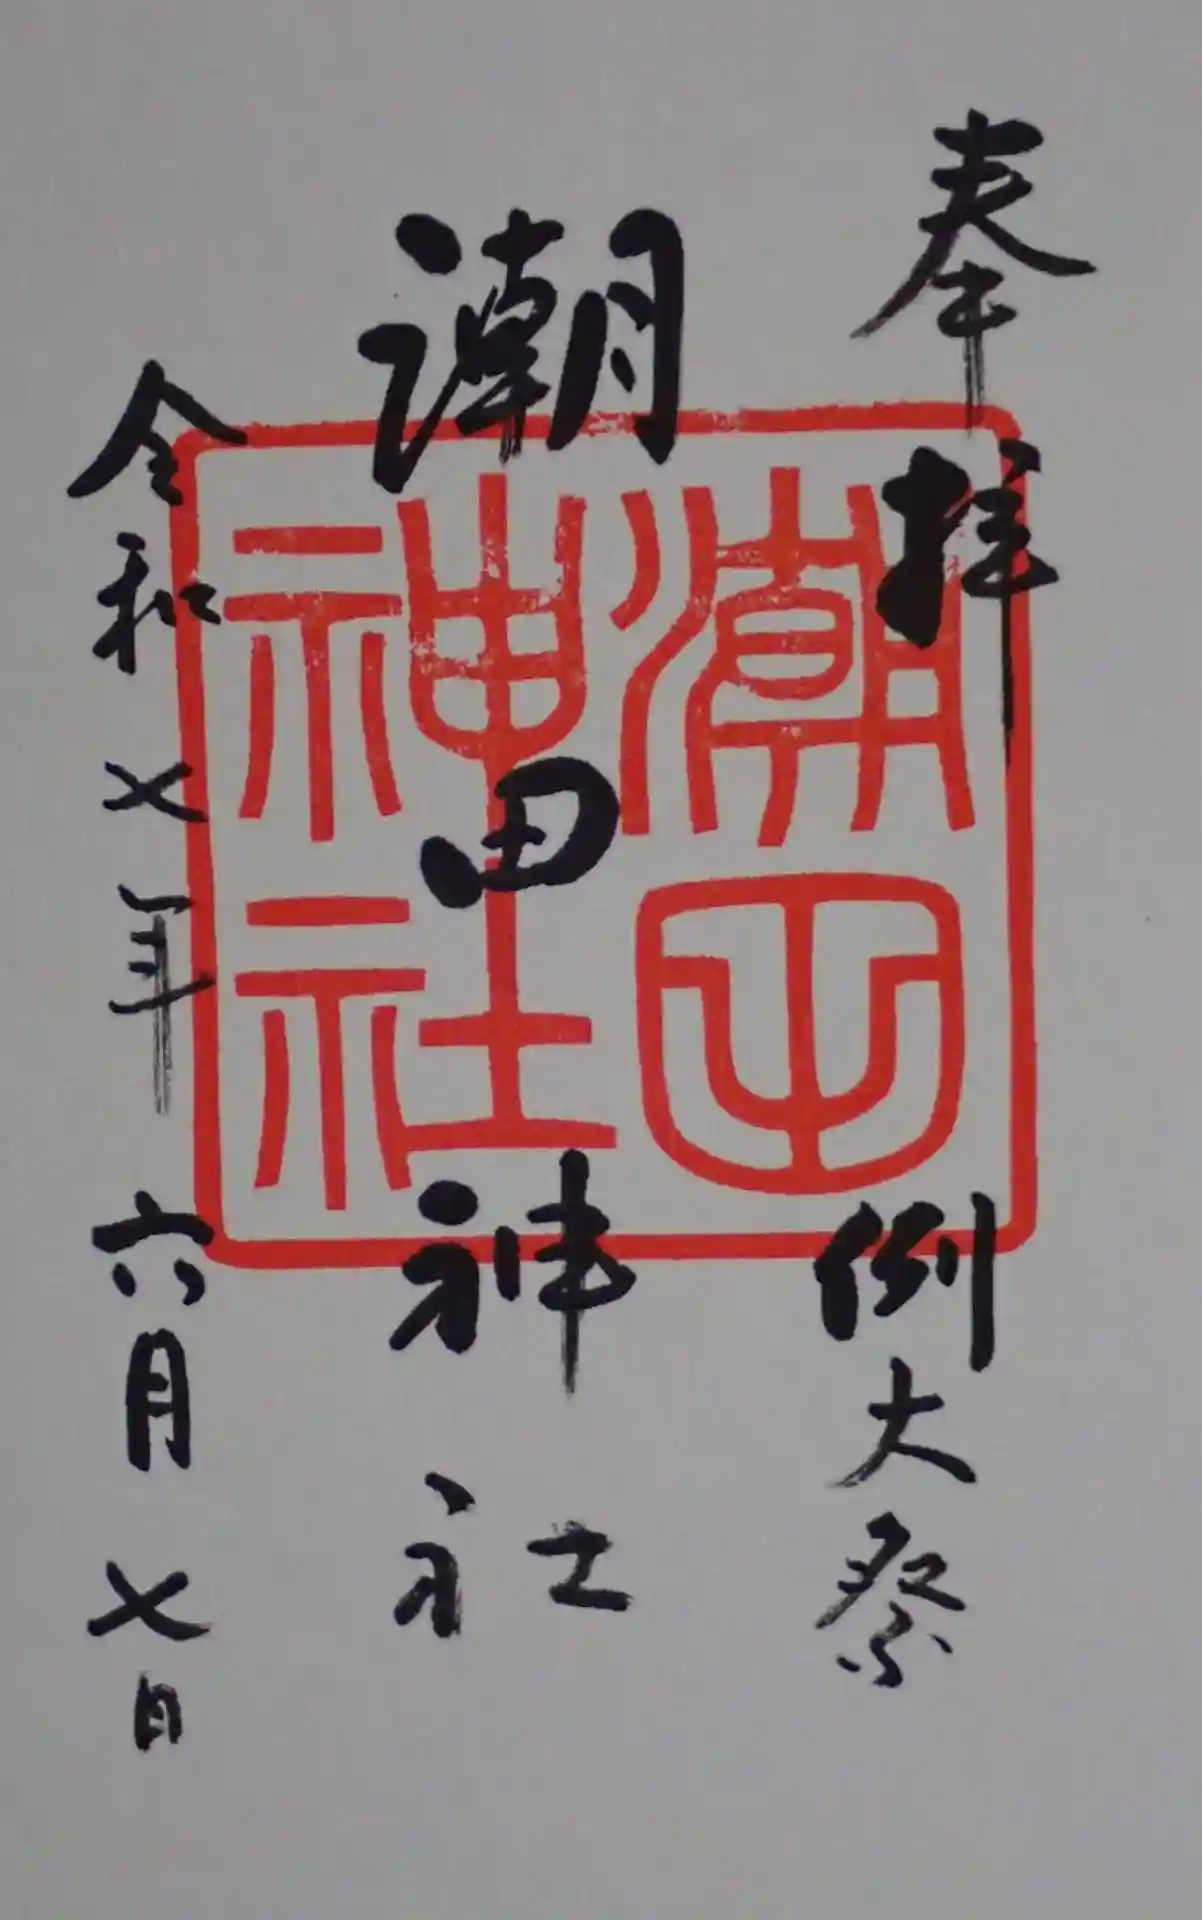 奉拝
例大祭
潮田神社
潮田
神社
令和七年六月七日